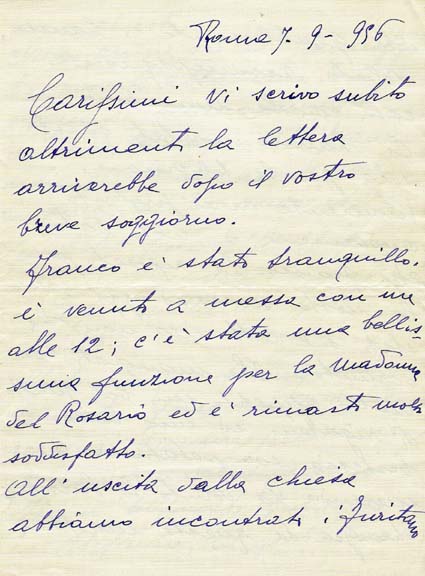 Roma 7-9-956
Carissimi vi scrivo subito
altrimenti la lettera
arriverebbe dopo il vostro
breve soggiorno.
Franco è stato tranquillo.
è venuto a messa con me
alle 12; c'è stata una bellis-
sima funzione per la Madonna
del Rosario ed è rimasto molto
soddisfatto.
All'uscita dalla chiesa
abbiamo incontrato i